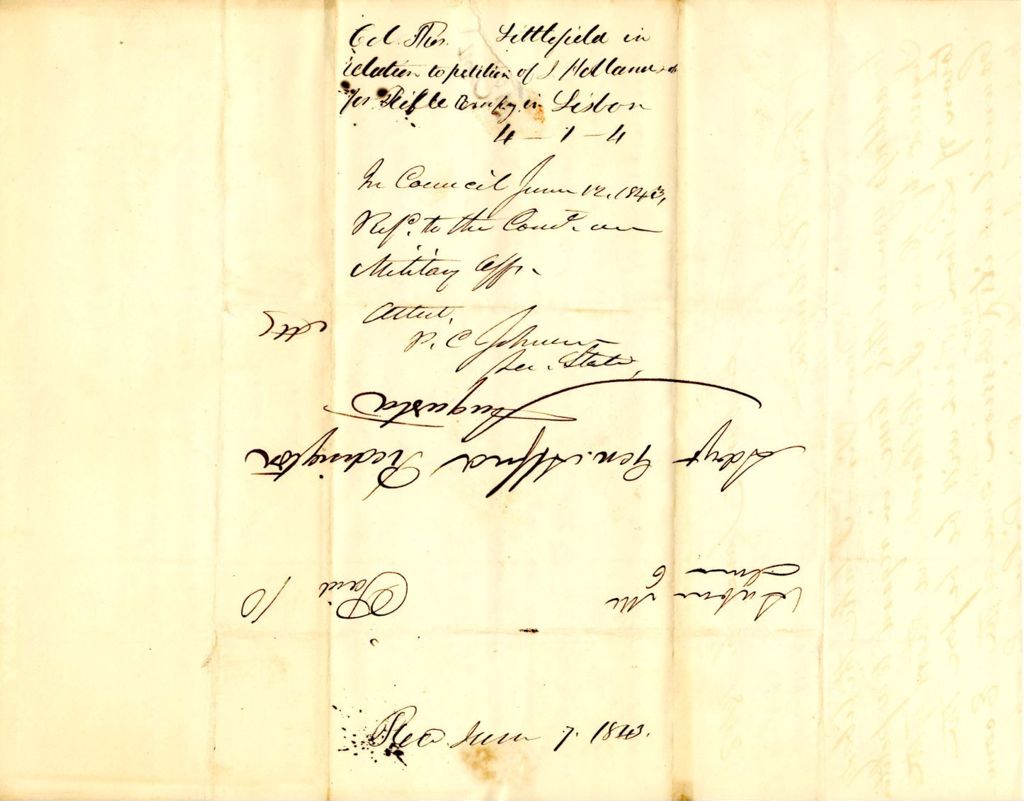 Col. Thos. Littlefield in
relation to petition of J Holland
for Rifle Compy in Lisbon
4 - 1 - 4
In Council June 12, 1843,
Refd. to the Comte. on
Military Affrs.
Attest,
P. C. Johnson
Sec. State,
Auburn Me
June 6
Paid 10
Adjt Gen. Alfred Redington
Augusta
Me
Rec'd June 7. 1843.